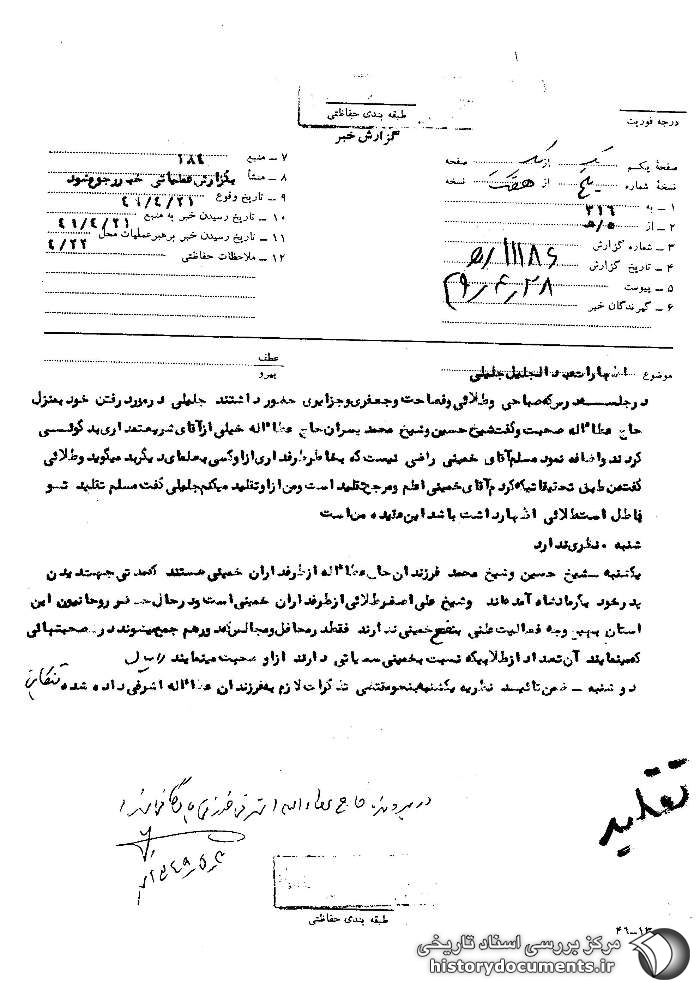 طبقه بندی حفاظتی
گزارش خبر
درجه فوریت
صفحهٔ یکم از یک صفحه
نسخهٔ شماره پنج از هفت نسخه
۱ ـ به ۳۱۶
۲ ـ از ۵/ه
۳ ـ شماره گزارش ۱۱۱۸۶/ه
۴ ـ تاریخ گزارش ۴۹/۴/۲۸
۵ ـ پیوست
۶ ـ گیرندگان خبر
۷ ـ منبع ۱۸۴
۸ ـ منشأ بگزارش عملیاتی خبر رجوع شود
۹ ـ تاریخ وقوع ۴۹/۴/۲۱
۱۰ ـ تاریخ رسیدن خبر به منبع ۴۹/۴/۲۱
۱۱ ـ تاریخ رسیدن خبر برهبر عملیات محل ۴/۲۲
۱۲ ـ ملاحظات حفاظتی
موضوع اظهارات عبدالجلیل جلیلی
عطف
پیرو
در جلسه درس که صباحی و طلائی و فصاحت و جعفری و جزایری حضور داشتند جلیلی در مورد رفتن خود بمنزل
حاج عطااله صحبت و گفت شیخ حسین و شیخ محمد پسران حاج عطااله خیلی از آقای شریعتمداری بدگوئی
کردند و اضافه نمود مسلم آقای خمینی راضی نیست که بخاطر طرفداری از او کسی به علمای دیگر بد میگوید و طلائی
گفت من طبق تحقیقاتیکه کردم آقای خمینی اعلم و مرجع تقلید است و من از او تقلید میکنم جلیلی گفت مسلم تقلید تو
باطل است طلائی اظهار داشت باشد این عقیده من است
شنبه ـ نظری ندارد
یکشنبه ـ شیخ حسین و شیخ محمد فرزندان حاج عطااله از طرفداران خمینی هستند که مدتی جهت دیدن
پدر خود بکرمانشاه آمده‌اند و شیخ علی اصغر طلائی از طرفداران خمینی است و در حال حاضر روحانیون این
استان بهیچ وجه فعالیت علنی بنفع خمینی ندارند فقط در محافل و مجالس که دور هم جمع میشوند در صحبتهائی
که مینمایند آن تعداد از طلابیکه نسبت بخمینی سمپاتی دارند از او صحبت مینمایند
دو شنبه ـ ضمن تائید نظریه یکشنبه بنحو مقتضی تذکرات لازم به فرزندان عطااله اشرفی داده شده
در پرونده حاج عطاءاله اشرفی
تقلید
طبقه بندی حفاظتی
۴۶-۱۳
مرکز بررسی اسناد تاریخی
historydocuments.ir